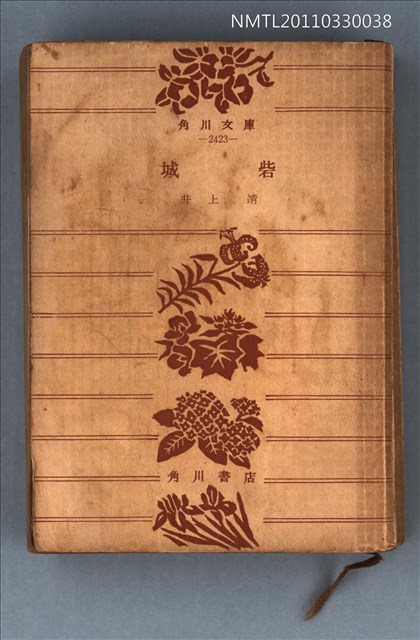 NMTL20110330038
角川文庫
—2423—
城砦
井上靖
角川書店